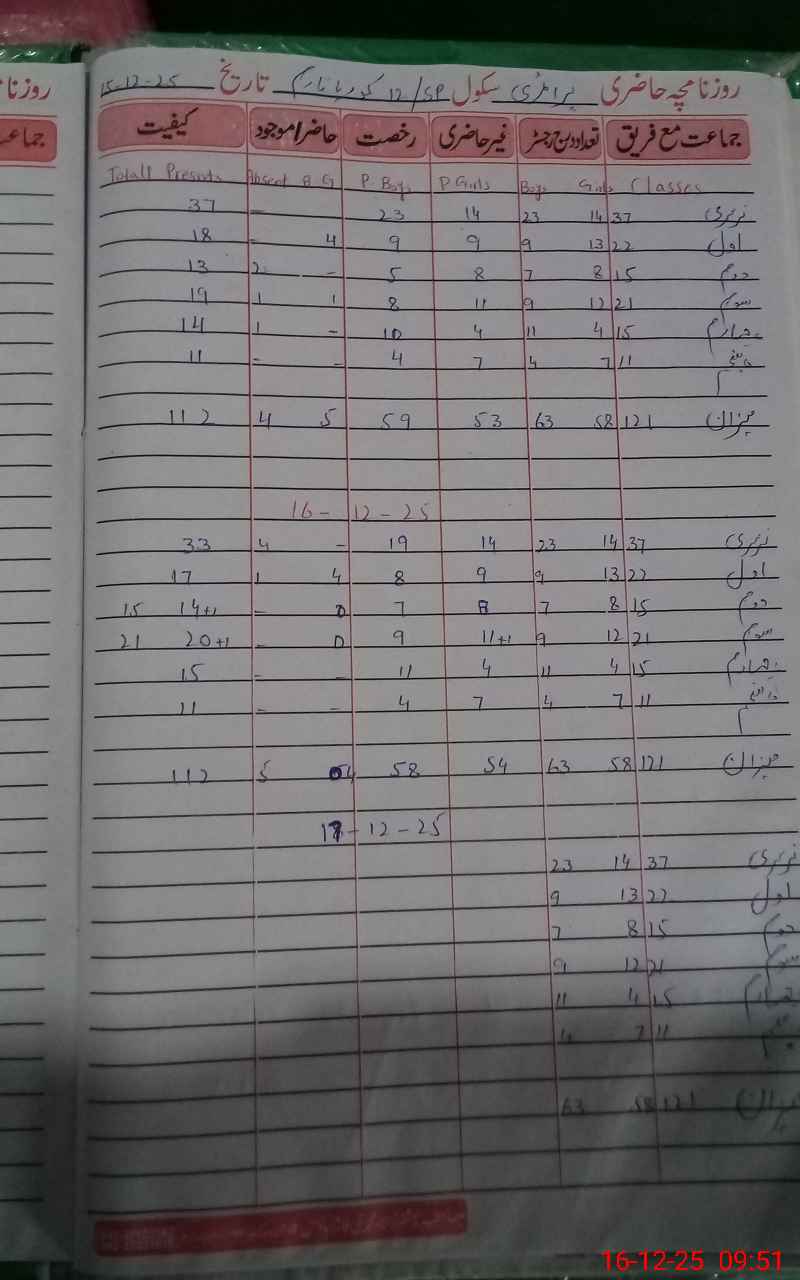 روزنامچہ حاضری پرائمری سکول 12/SP تاریخ 15-12-25
جماعت مع فریق تعداد درج رجسٹر غیر حاضری رخصت حاضر/موجود کیفیت
Totall Presents Absent B G P. Boys P Girls Boys Girls Classes
37 - 23 14 23 14 37 نرسری
18 - 4 9 9 9 13 22 اول
13 2 - 5 8 7 8 15 دوم
19 1 1 8 11 9 12 21 سوم
14 1 - 10 4 11 4 15 چہارم
11 - - 4 7 4 7 11 پانچم
112 4 5 59 53 63 58 121 میزان
16-12-25
33 4 - 19 14 23 14 37 نرسری
17 1 4 8 9 9 13 22 اول
15 14+1 - 0 7 8 7 8 15 دوم
21 20+1 - 0 9 11+1 9 12 21 سوم
15 - - 11 4 11 4 15 چہارم
11 - - 4 7 4 7 11 پانچم
112 5 04 58 54 63 58 121 میزان
17-12-25
23 14 37 نرسری
9 13 22 اول
7 8 15 دوم
9 12 21 سوم
11 4 15 چہارم
4 7 11
63 58 121 میزان
روزنا
جماعت
16-12-25 09:51